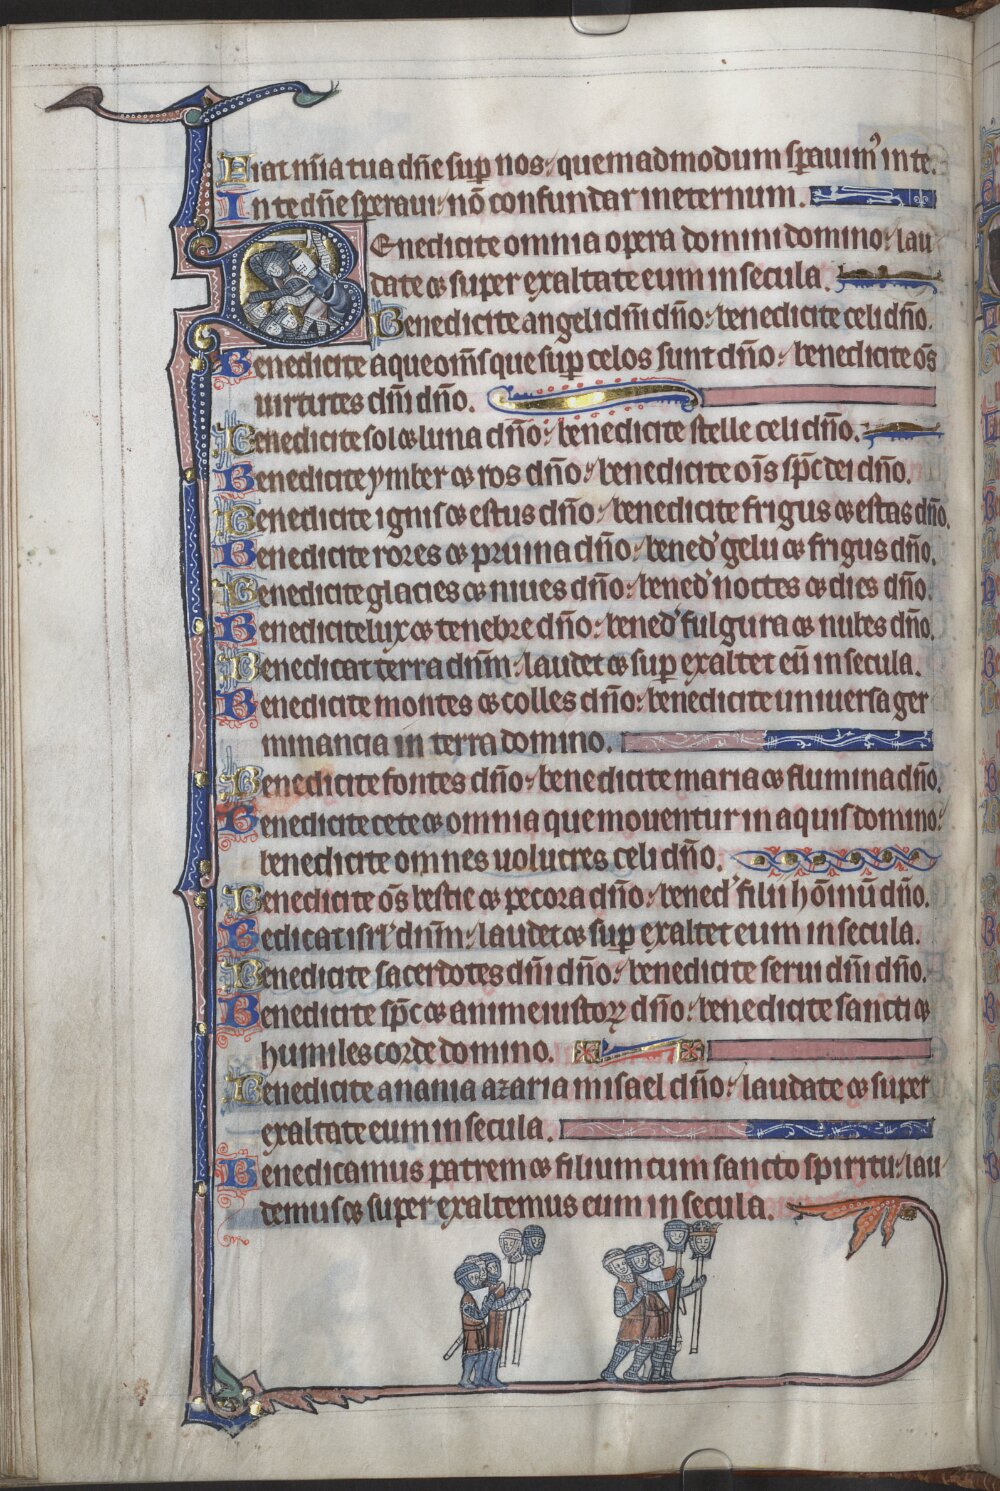 Fiat mīa tua dn̄e sup̱ nos: quemadmodum sp̱auim᷒ in te.
In te dn̄e speraui: nō confundar in eternum.
Benedicite omnia opera domini domino: lau
date ⁊ super exaltate eum in secula.
Benedicite angeli dn̄i dn̄o: benedicite celi dn̄o.
Benedicite aque om̄s que sup̱ celos sunt dn̄o: benedicite om̄s
uirtutes dn̄i dn̄o.
Benedicite sol ⁊ luna dn̄o: benedicite stelle celi dn̄o.
Benedicite ymber ⁊ ros dn̄o: benedicite oīs sp̄c dei dn̄o.
Benedicite ignis ⁊ estus dn̄o: benedicite frigus ⁊ estas dn̄o.
Benedicite rores ⁊ pruina dn̄o: bened' gelu ⁊ frigus dn̄o.
Benedicite glacies ⁊ niues dn̄o: bened' noctes ⁊ dies dn̄o.
Benedicite lux ⁊ tenebre dn̄o: bened' fulgura ⁊ nubes dn̄o.
Benedicat terra dnm̄: laudet ⁊ sup̱ exaltet eū in secula.
Benedicite montes ⁊ colles dn̄o: benedicite uniuersa ger
minancia in terra domino.
Benedicite fontes dn̄o: benedicite maria ⁊ flumina dn̄o.
Benedicite cete ⁊ omnia que mouentur in aquis domino:
benedicite omnes uolucres celi dn̄o.
Benedicite ōs bestie ⁊ pecora dn̄o: bened' filii hoīnū dn̄o.
Bedicat isrl' dnm̄: laudet ⁊ sup̱ exaltet eum in secula.
Benedicite sacerdotes dn̄i dn̄o: benedicite serui dn̄i dn̄o.
Benedicite sp̄c ⁊ anime iustoꝝ dn̄o: benedicite sancti ⁊
humiles corde domino.
Benedicite anania azaria misael dn̄o: laudate ⁊ super
exaltate eum in secula.
Benedicamus patrem ⁊ filium cum sancto spiritu: lau
demus ⁊ super exaltemus eum in secula.